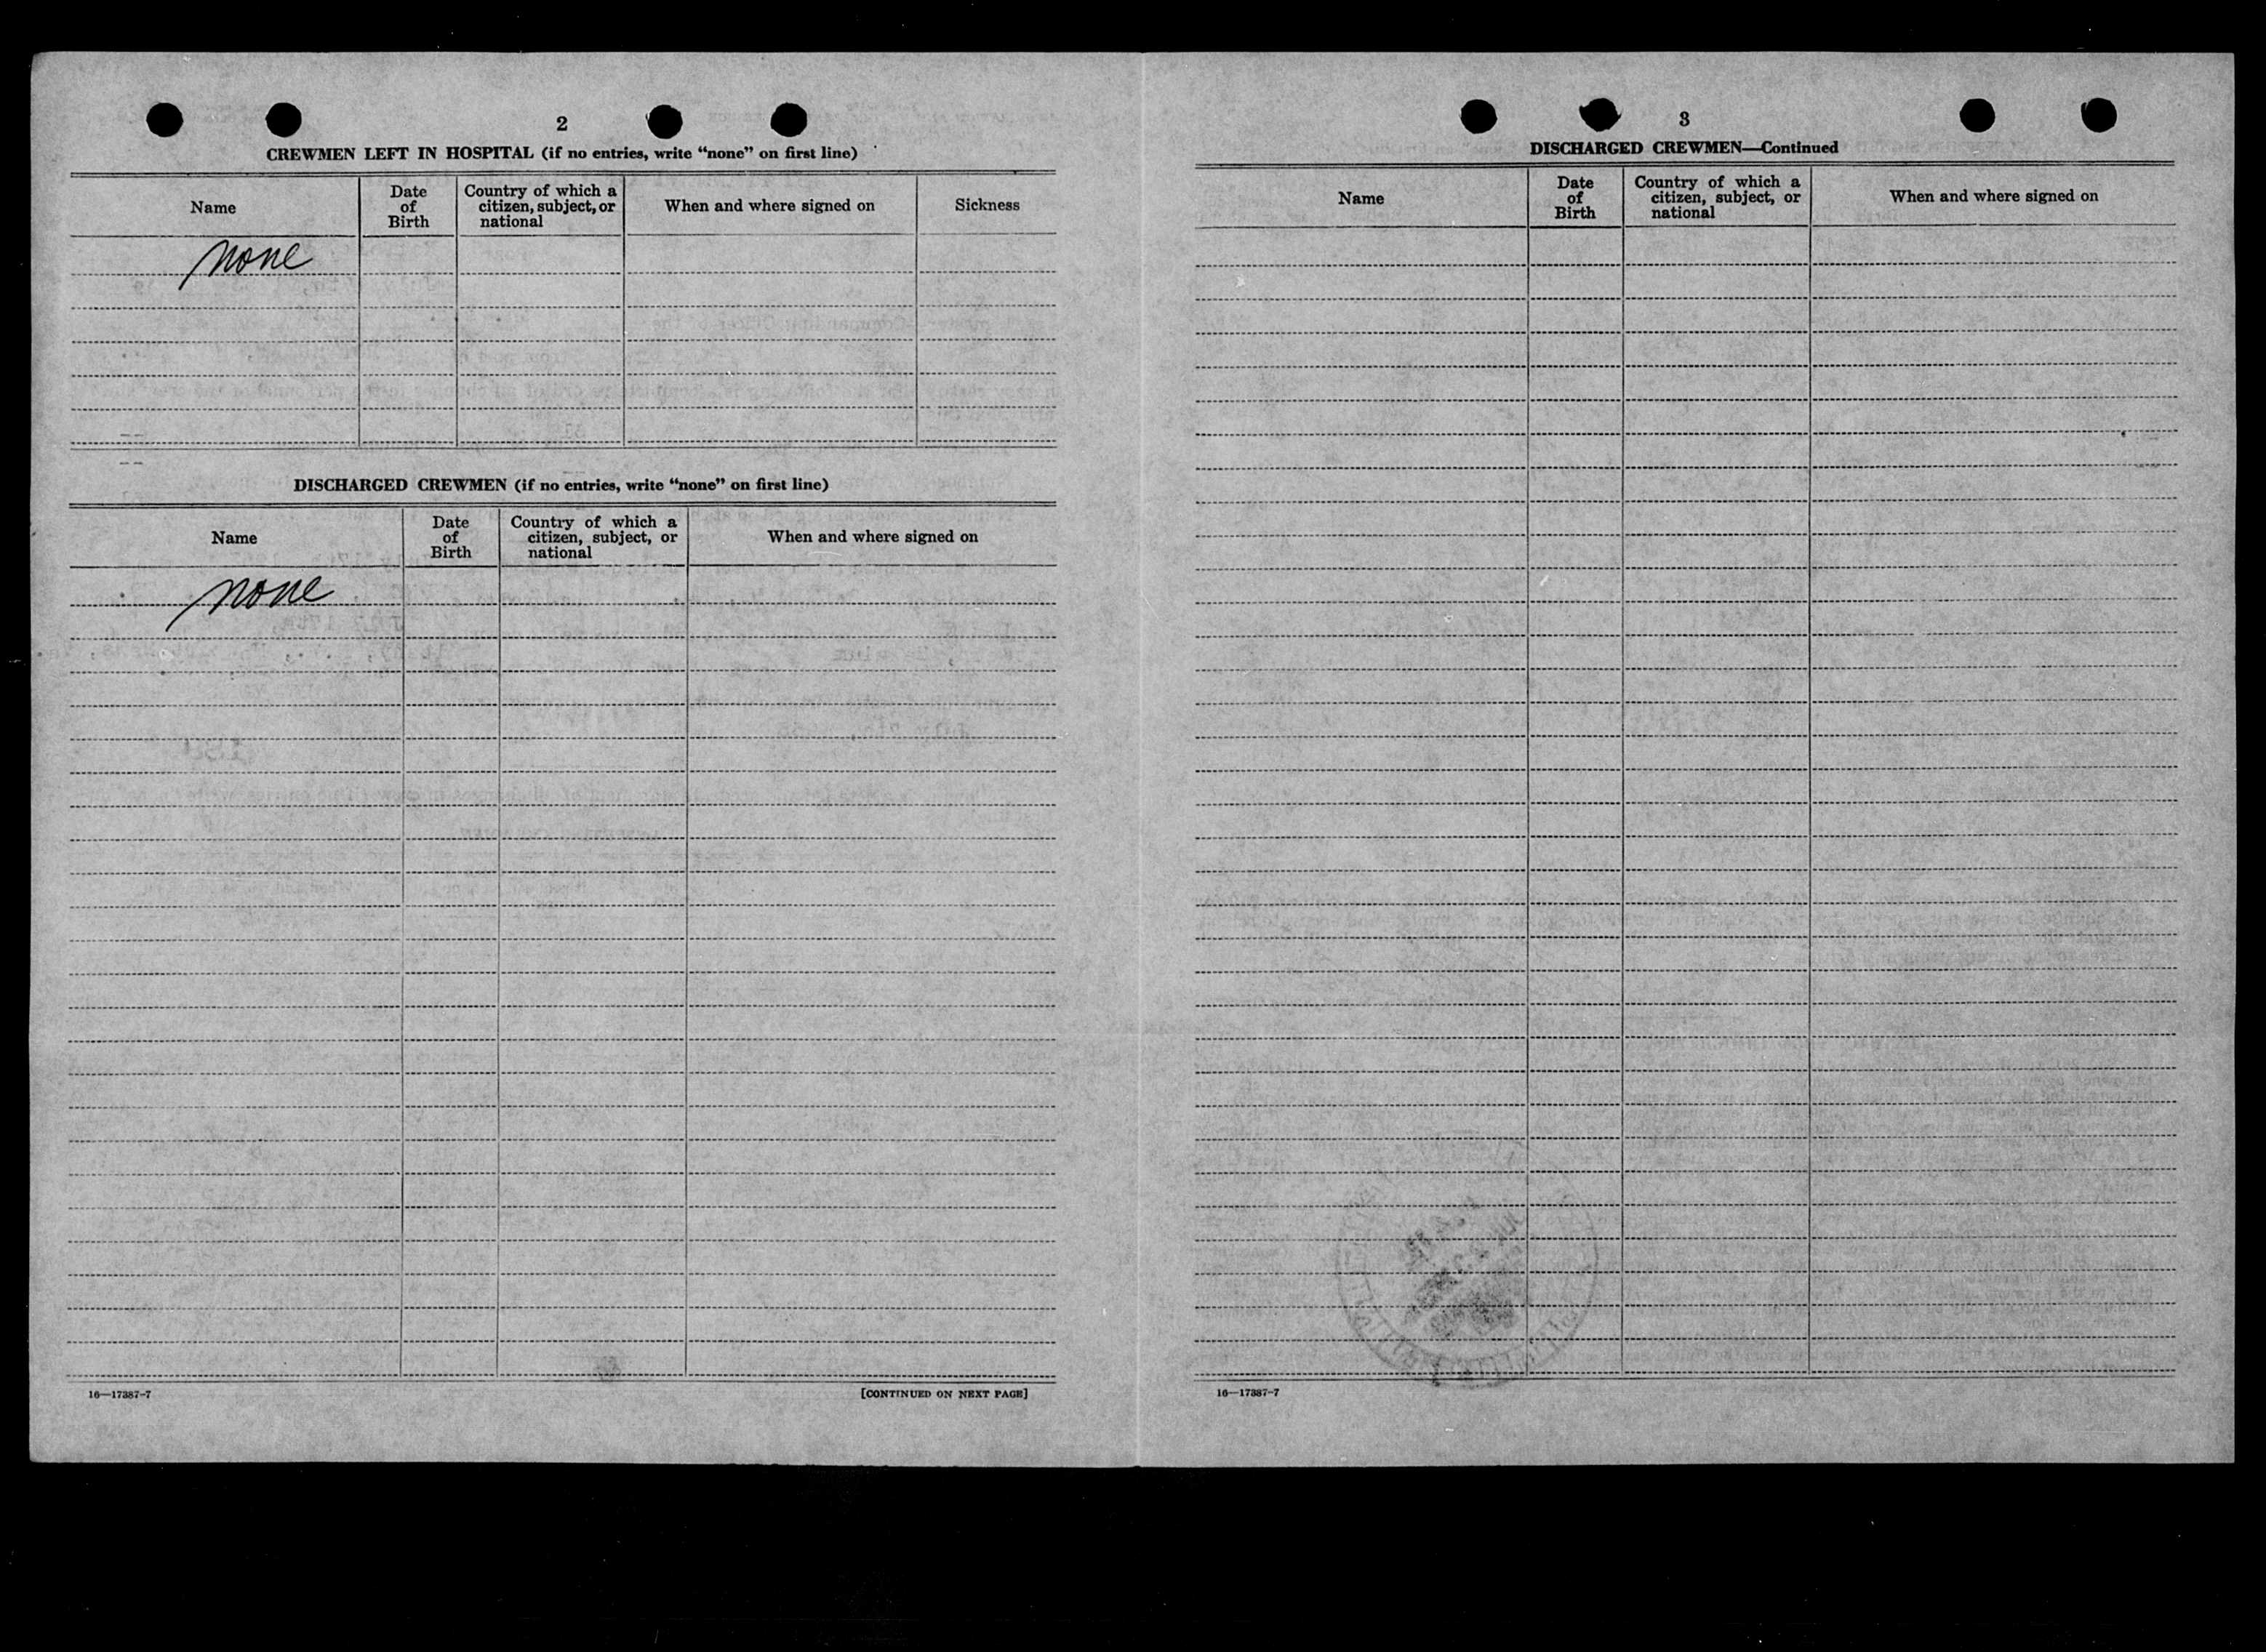 2
CREWMEN LEFT IN HOSPITAL (if no entries, write “none” on first line)
Name
Date of Birth
Country of which a citizen, subject, or national
When and where signed on
Sickness
none
DISCHARGED CREWMEN (if no entries, write “none” on first line)
Name
Date of Birth
Country of which a citizen, subject, or national
When and where signed on
none
16—17387-7
[CONTINUED ON NEXT PAGE]
3
DISCHARGED CREWMEN—Continued
Name
Date of Birth
Country of which a citizen, subject, or national
When and where signed on
16—17387-7